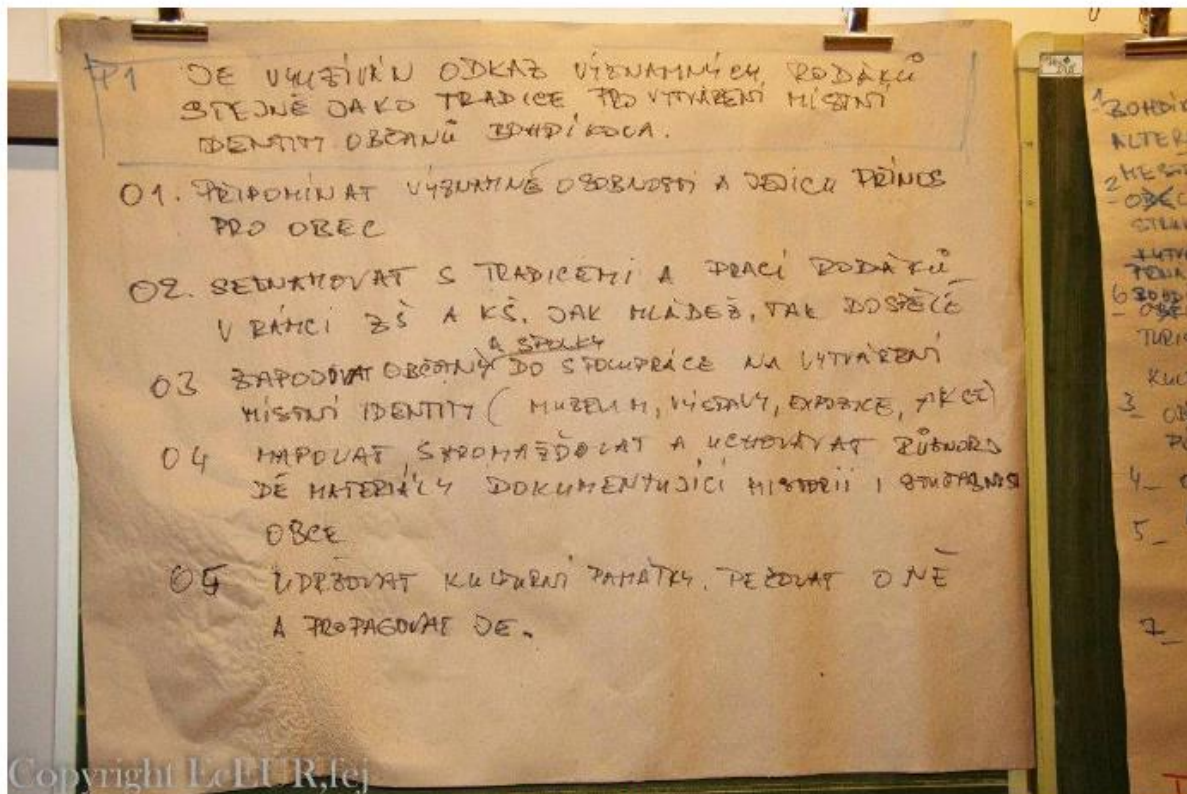 P1 JE VYUŽÍVÁN ODKAZ VÝZNAMNÝCH RODÁKŮ
STEJNĚ JAKO TRADICE PRO VYTVÁŘENÍ MÍSTNÍ
IDENTITY OBČANŮ BOHDÍKOVA.
O1. PŘIPOMÍNAT VÝZNAMNÉ OSOBNOSTI A JEJICH PŘÍNOS
PRO OBEC
O2. SEZNAMOVAT S TRADICEMI A PRACÍ RODÁKŮ
V RÁMCI ZŠ A KŠ. JAK MLÁDEŽ, TAK DOSPĚLÉ
A SPOLKY
O3 ZAPOJOVAT OBČANY DO SPOLUPRÁCE NA VYTVÁŘENÍ
MÍSTNÍ IDENTITY (MUZEUM, VÝSTAVY, EXPOZICE, AKCE)
O4 MAPOVAT SHROMAŽĎOVAT A UCHOVÁVAT RŮZNORO
DÉ MATERIÁLY DOKUMENTUJÍCÍ HISTORII I SOUČASNOST
OBCE
O5 UDRŽOVAT KULTURNÍ PAMÁTKY. PEČOVAT O NĚ
A PROPAGOVAT JE.
1 BOHDÍK
ALTER
2
6
TURIS
KUL
3_
4_
5_
7_
Copyright EcEUR,fej